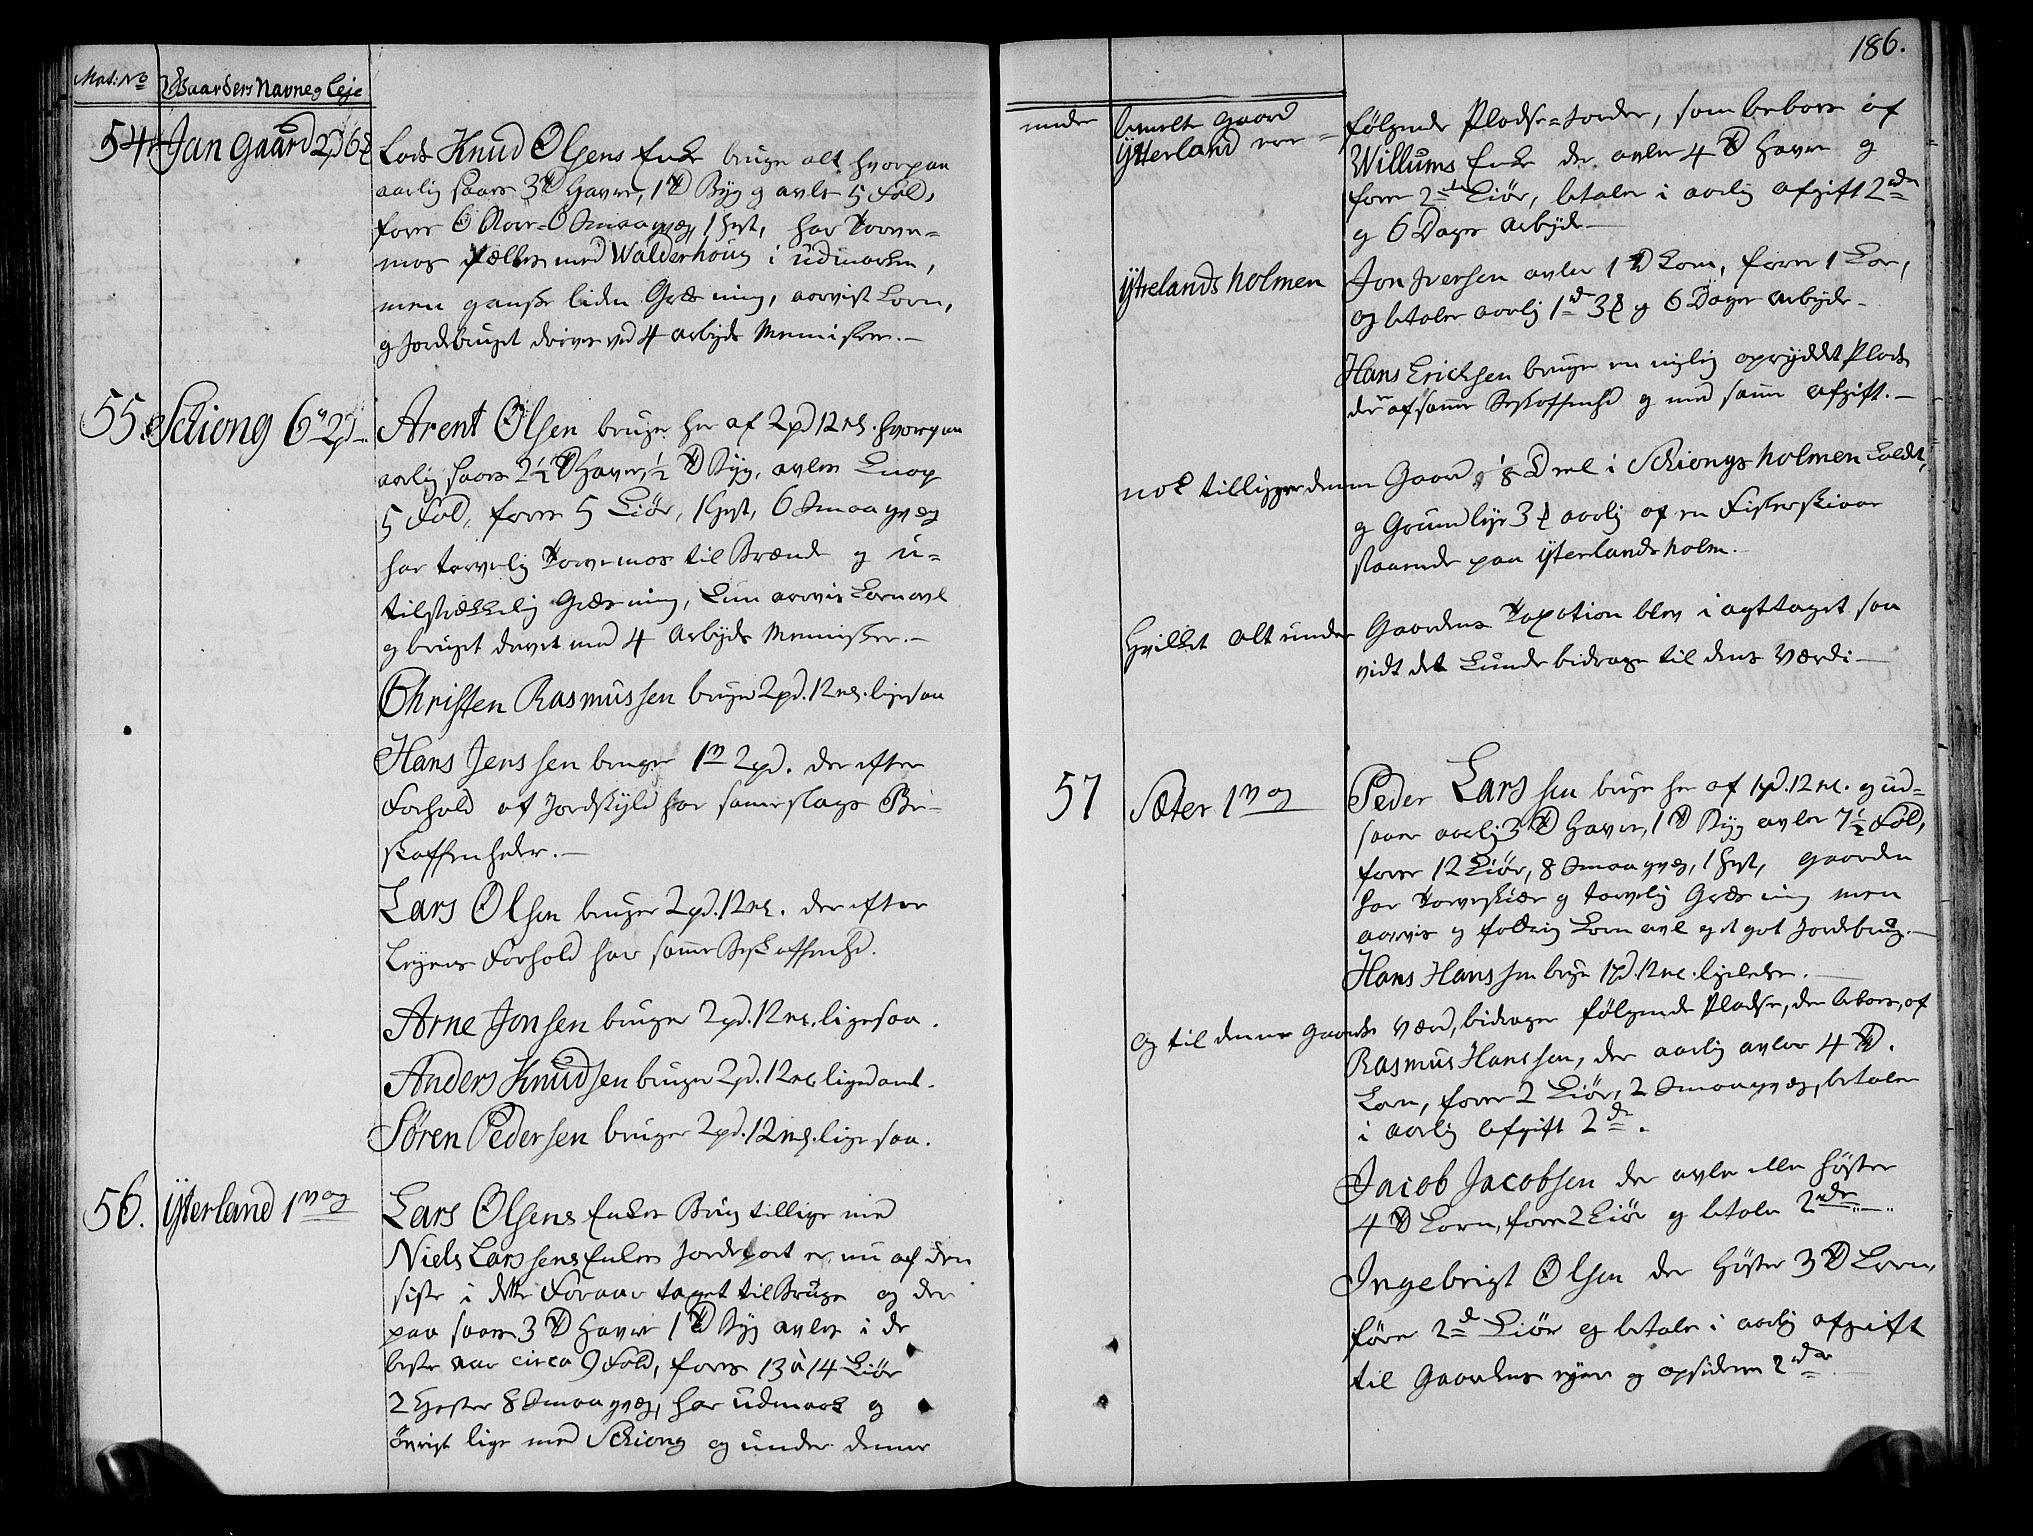 Mat: No Gaarders Navne og Leje
54 Jan Gaard 2 pd 6
Lods Knud Olsens Enke bruger alt hvorpaa
aarlig saaes 3 Td Havre, 1 Td Byg og avles 5 Fold,
foere 6 Naut 6 Smaaqvæg, 1 Hest, har Torve=
mos fælles med Walderhoug i Udmarken,
men ganske liden Græsning, aarvist Korn,
og Jordebruget drives ved 4 Arbejds Mennisker.
55. Schiong 6 v 2 pd
Arent Olsen bruger her af 2 pd 12 mk. hvorpaa
aarlig saaes 2½ Td Havre, ½ Td Byg, avles knap
5 Fold, foere 5 Kiör, 1 Hest, 6 Smaaqvæg
har tarvelig Torvemos til Brænde og u=
tilstrækkelig Græsning, kun aarvis Kornavl
og bruget drevet med 4 Arbejds Mennisker.
Christen Rasmussen bruger 2 pd. 12 mk. ligesaa
Hans Jenssen bruger 1 v 2 pd. der efter
Forhold af Jordskyld har sameslags Be=
skaffenheder.
Lars Olsen bruger 2 pd. 12 mk. der efter
Lejens Forhold har samme Beskaffenhed.
Arne Jonsen bruger 2 pd. 12 mk. ligesaa.
Anders Knudsen bruger 2 pd. 12 mk ligedant.
Sören Pedersen bruger 2 pd. 12 mk. ligesaa.
56. Ytterland 1 vog
Lars Olsens Enkes Brug tillige med
Niels Larssens Enkes Jordepart er nu af den
siste i dette Foraar taget til Bruge og der
paa saaes 3 Td Havre 1 Td Byg avles i de
beste aar circa 9 Fold, foeres 13 à 14 Kiör
2 Hester 8 Smaaqvæg, har udmark og
övrigt lige med Schiong og under denne
186.
under bemelte Gaard
Ytterland ere = følgende Pladse=Jorder, som beboes af
Willums Enke der avler 4 Td Havre og
foere 2de Kiör, betaler i aarlig afgift 2 rdr
og 6 Dages arbejde
Ytrelands holmen Jon Iversen avler 1 Td Korn, foere 1 Koe,
og betaler aarlig 1 rd 3 og 6 Dages Arbejde
Hans Erichsen bruger en nylig opryddet Plads
der af samme Beskaffenhed og med samme afgift.
nok tilligger denne Gaard ⅛ Deel i Schiongs holmen kaldt,
og Grundleje 3 aarlig af en Fisker skiaae
staaende paa Ytterlandsholm.
Hvilket alt under Gaardens Taxation blev i agttaget saa
vidt det kunde bidrage til dens Værdi
57 Sæter 1 vog
Peder Larssen bruger her af 1 pd. 12 mk. og ud=
saaer aarlig 3 Td Havre, 1 Td Byg avler 7½ Fold,
foere 12 Kiör, 8 Smaaqvæg, 1 Hest, gaarden
har Torveskiær og tarvelig Græsning men
aarvis og foldrig Kornavl og et got Jordebrug.
Hans Hanssen bruger 1 pd. 12 mk. ligeledes.
og til denne Gaards Værd, bidrager følgende Pladse, der beboes, af
Rasmus Hanssen, der aarlig avler 4 Td.
Korn, foere 2 Kiör, 2 Smaaqvæg, betaler
i aarlig Afgift 2 dr.
Jacob Jacobsen der avler eller høster
4 Td Korn, foere 2 Kiör og betaler 2 rdr
Ingebrigt Olsen der høster 3 Td Korn,
före 2de Kiör og betaler i aarlig afgift
til Gaardens ejere og opsiddere 2 rdr